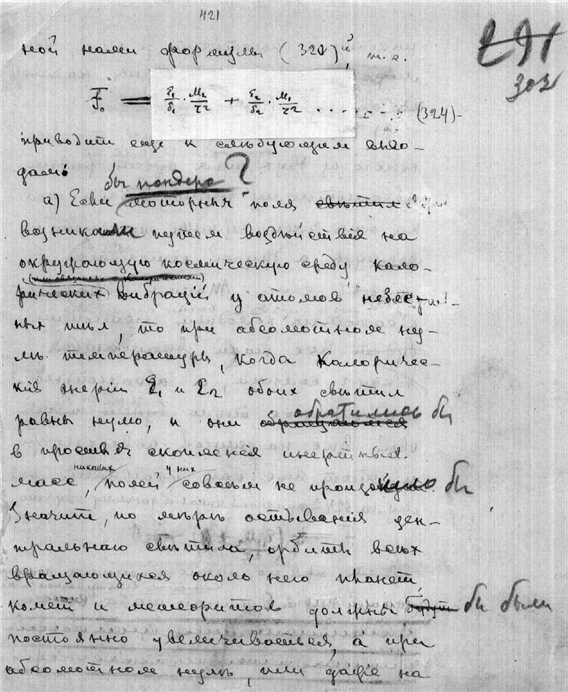 421
291
302
ной нами формулы (321)й, т. е.
F₀ = ε₁/δ₁ · M₂/r² + ε₂/δ₂ · M₁/r² . . . . . . . (324)
приводит еще к следующим выво-
дам:
бы пондеро?
а) Если моторныя поля
возникали путем воздѣйствiя на
окружающую космическую среду кало-
рических вибрацiй у атомов небес-
ных тѣл, то при абсолютном ну-
лѣ температуры, когда калориче-
скiя энергiи ε₁ и ε₂ обоих свѣтил
равны нулю, и они обратились бы
в простыя скопленiя инертных
никаких у них
масс, полей совсем не бы
Значит, по мѣрѣ остыванiя цен-
тральнаго свѣтила, орбиты всѣх
вращающихся около него планет,
комет и метеоритов должны бы были
постоянно увеличиваться, а при
абсолютном нулѣ, или даже на